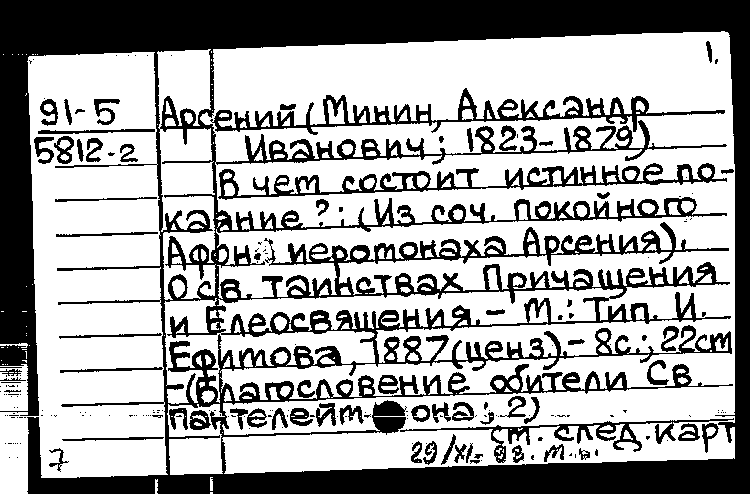 1.
91-5 Арсений (Минин, Александр
5812-2 Иванович; 1823-1879).
В чем состоит истинное по-
каяние?: (Из соч. покойного
Афон. иеромонаха Арсения).
О св. таинствах Причащения
и Елеосвящения. - М.: Тип. И.
Ефимова, 1887 (ценз.). - 8с.; 22см
-(Благословение обители Св.
Пантелеймона; 2)
см. след. карт
7 29/XI- 93. м.в.